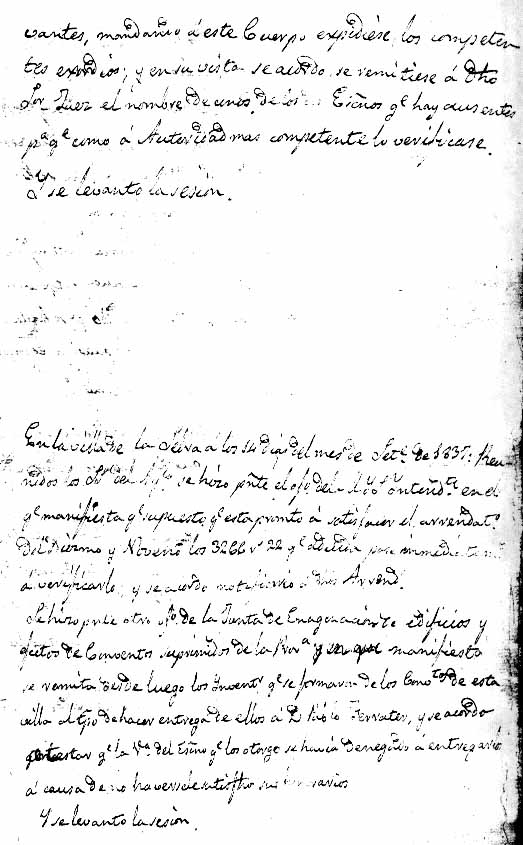 vantes, mandando á este Cuerpo expidiese los competen
tes exordios; y en su vista se acordo se remitiese á dho
Sor Juez el nombre de unos de los Essños qe hay ausentes
pa qe como á Autoridad mas competente lo verificase.
Y se levanto la sesion.
En la villa de la Selva á los 14 dias del mes de Setre de 1837: Reu
nidos los Sres del Ayto se hizo pnte el ofo del en el
qe manifiesta qe supuesto qe esta pronto á satisfacer el arrendato
del Diezmo y Noveno los 3266 rs 22 qe pase inmediatamte
á verificarlo, y se acordo notificarlo á dhos Arrend.
Se hizo pnte otro ofo de la Junta de Enagenacion de edificios y
efectos de Conventos suprimidos de la Prova y manifiesta
se remita desde luego los Inventos qe se formaron de los Convtos de esta
villa al tpo de hacer entrega de ellos á D. Ferrater, y se acordo
contestar qe la Va del Essño qe los otorgo se havia denegado á entregarlos
á causa de no haversele satisfho sus
Y se levanto la sesion.